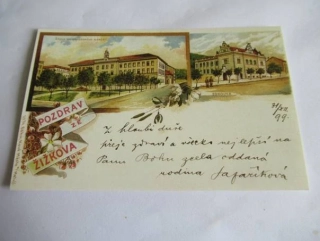 POZDRAV
ZE
ŽIŽKOVA
99.
Z hloubi duše
přeje zdraví a všecko nejlepší na
Pánu Bohu zcela oddaná
rodina Šafaříková